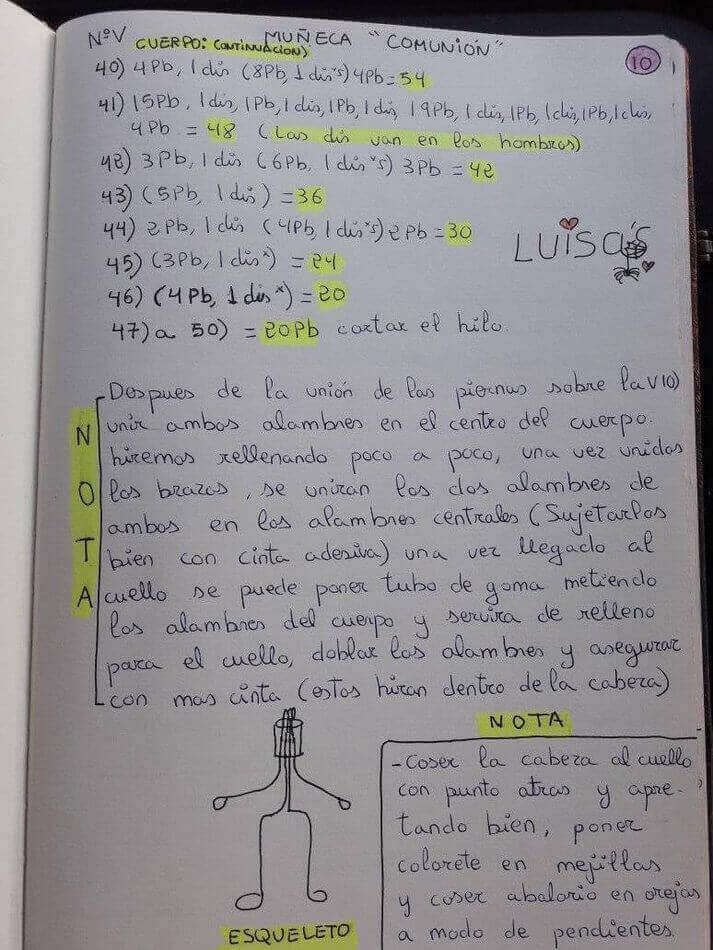 NºV CUERPO: (CONTINUACION) MUÑECA "COMUNIÓN"
10
40) 4Pb, 1 dis (8Pb, 1 dis*5) 4Pb = 54
41) 15Pb, 1 dis, 1Pb, 1 dis, 1Pb, 1 dis, 19Pb, 1 dis, 1Pb, 1 dis, 1Pb, 1 dis,
4Pb = 48 (Las dis van en los hombros)
42) 3Pb, 1 dis (6Pb, 1 dis*5) 3Pb = 42
43) (5Pb, 1 dis) = 36
44) 2Pb, 1 dis (4Pb, 1 dis*5) 2Pb = 30
45) (3Pb, 1 dis*) = 24
46) (4Pb, 1 dis*) = 20
47) a 50) = 20Pb cortar el hilo.
LUISA'S
NOTA
Despues de la unión de las piernas sobre la V10)
unir ambos alambres en el centro del cuerpo.
hiremos rellenando poco a poco, una vez unidos
los brazos, se uniran los dos alambres de
ambos en los alambres centrales (Sujetarlos
bien con cinta adesiva) una vez llegado al
cuello se puede poner tubo de goma metiendo
los alambres del cuerpo y servira de relleno
para el cuello, doblar los alambres y asegurar
con mas cinta (estos hiran dentro de la cabeza)
NOTA
- Coser la cabeza al cuello
con punto atras y apre-
tando bien, poner
colorete en mejillas
y coser abalorio en orejas
a modo de pendientes.
ESQUELETO